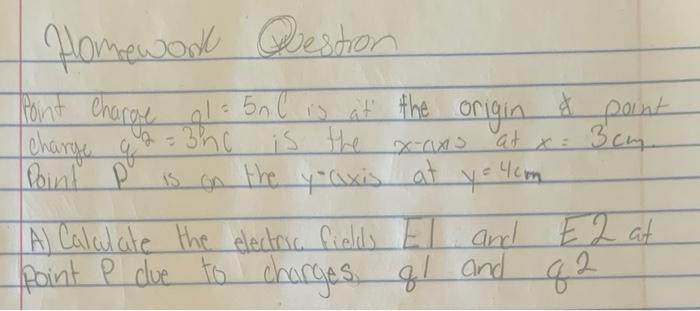 Homework Question
Point charge q1 = 5nC is at the origin & point
charge q2 = 3nC is the x-axis at x = 3cm.
Point P is on the y-axis at y = 4cm
A) Calculate the electric fields E1 and E2 at
point P due to charges q1 and q2